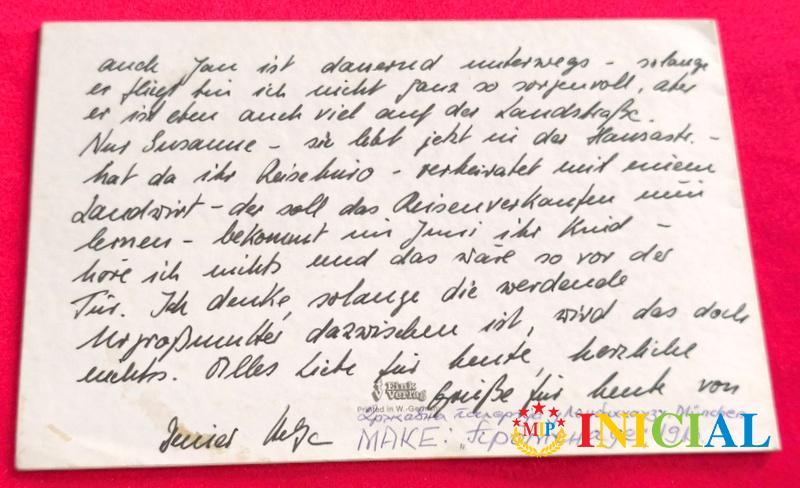 auch Jan ist dauernd unterwegs – solange
er fliegt bin ich nicht ganz so sorgenvoll, aber
er ist eben auch viel auf der Landstraße.
Nur Susanne – sie lebt jetzt in der Hansastr. –
hat da ihr Reisebüro – verheiratet mit einem
Landwirt – der soll das Reisenverkaufen nun
lernen – bekommt im Juni ihr Kind –
höre ich nichts und das wäre so vor der
Tür. Ich denke, solange die werdende
Urgroßmutter dazwischen ist, wird das doch
nichts. Alles Liebe für heute, herzliche
Grüße für heute von
Fink Verlag
Printed in W.-Germany
München
MAKE:
MIP INICIAL